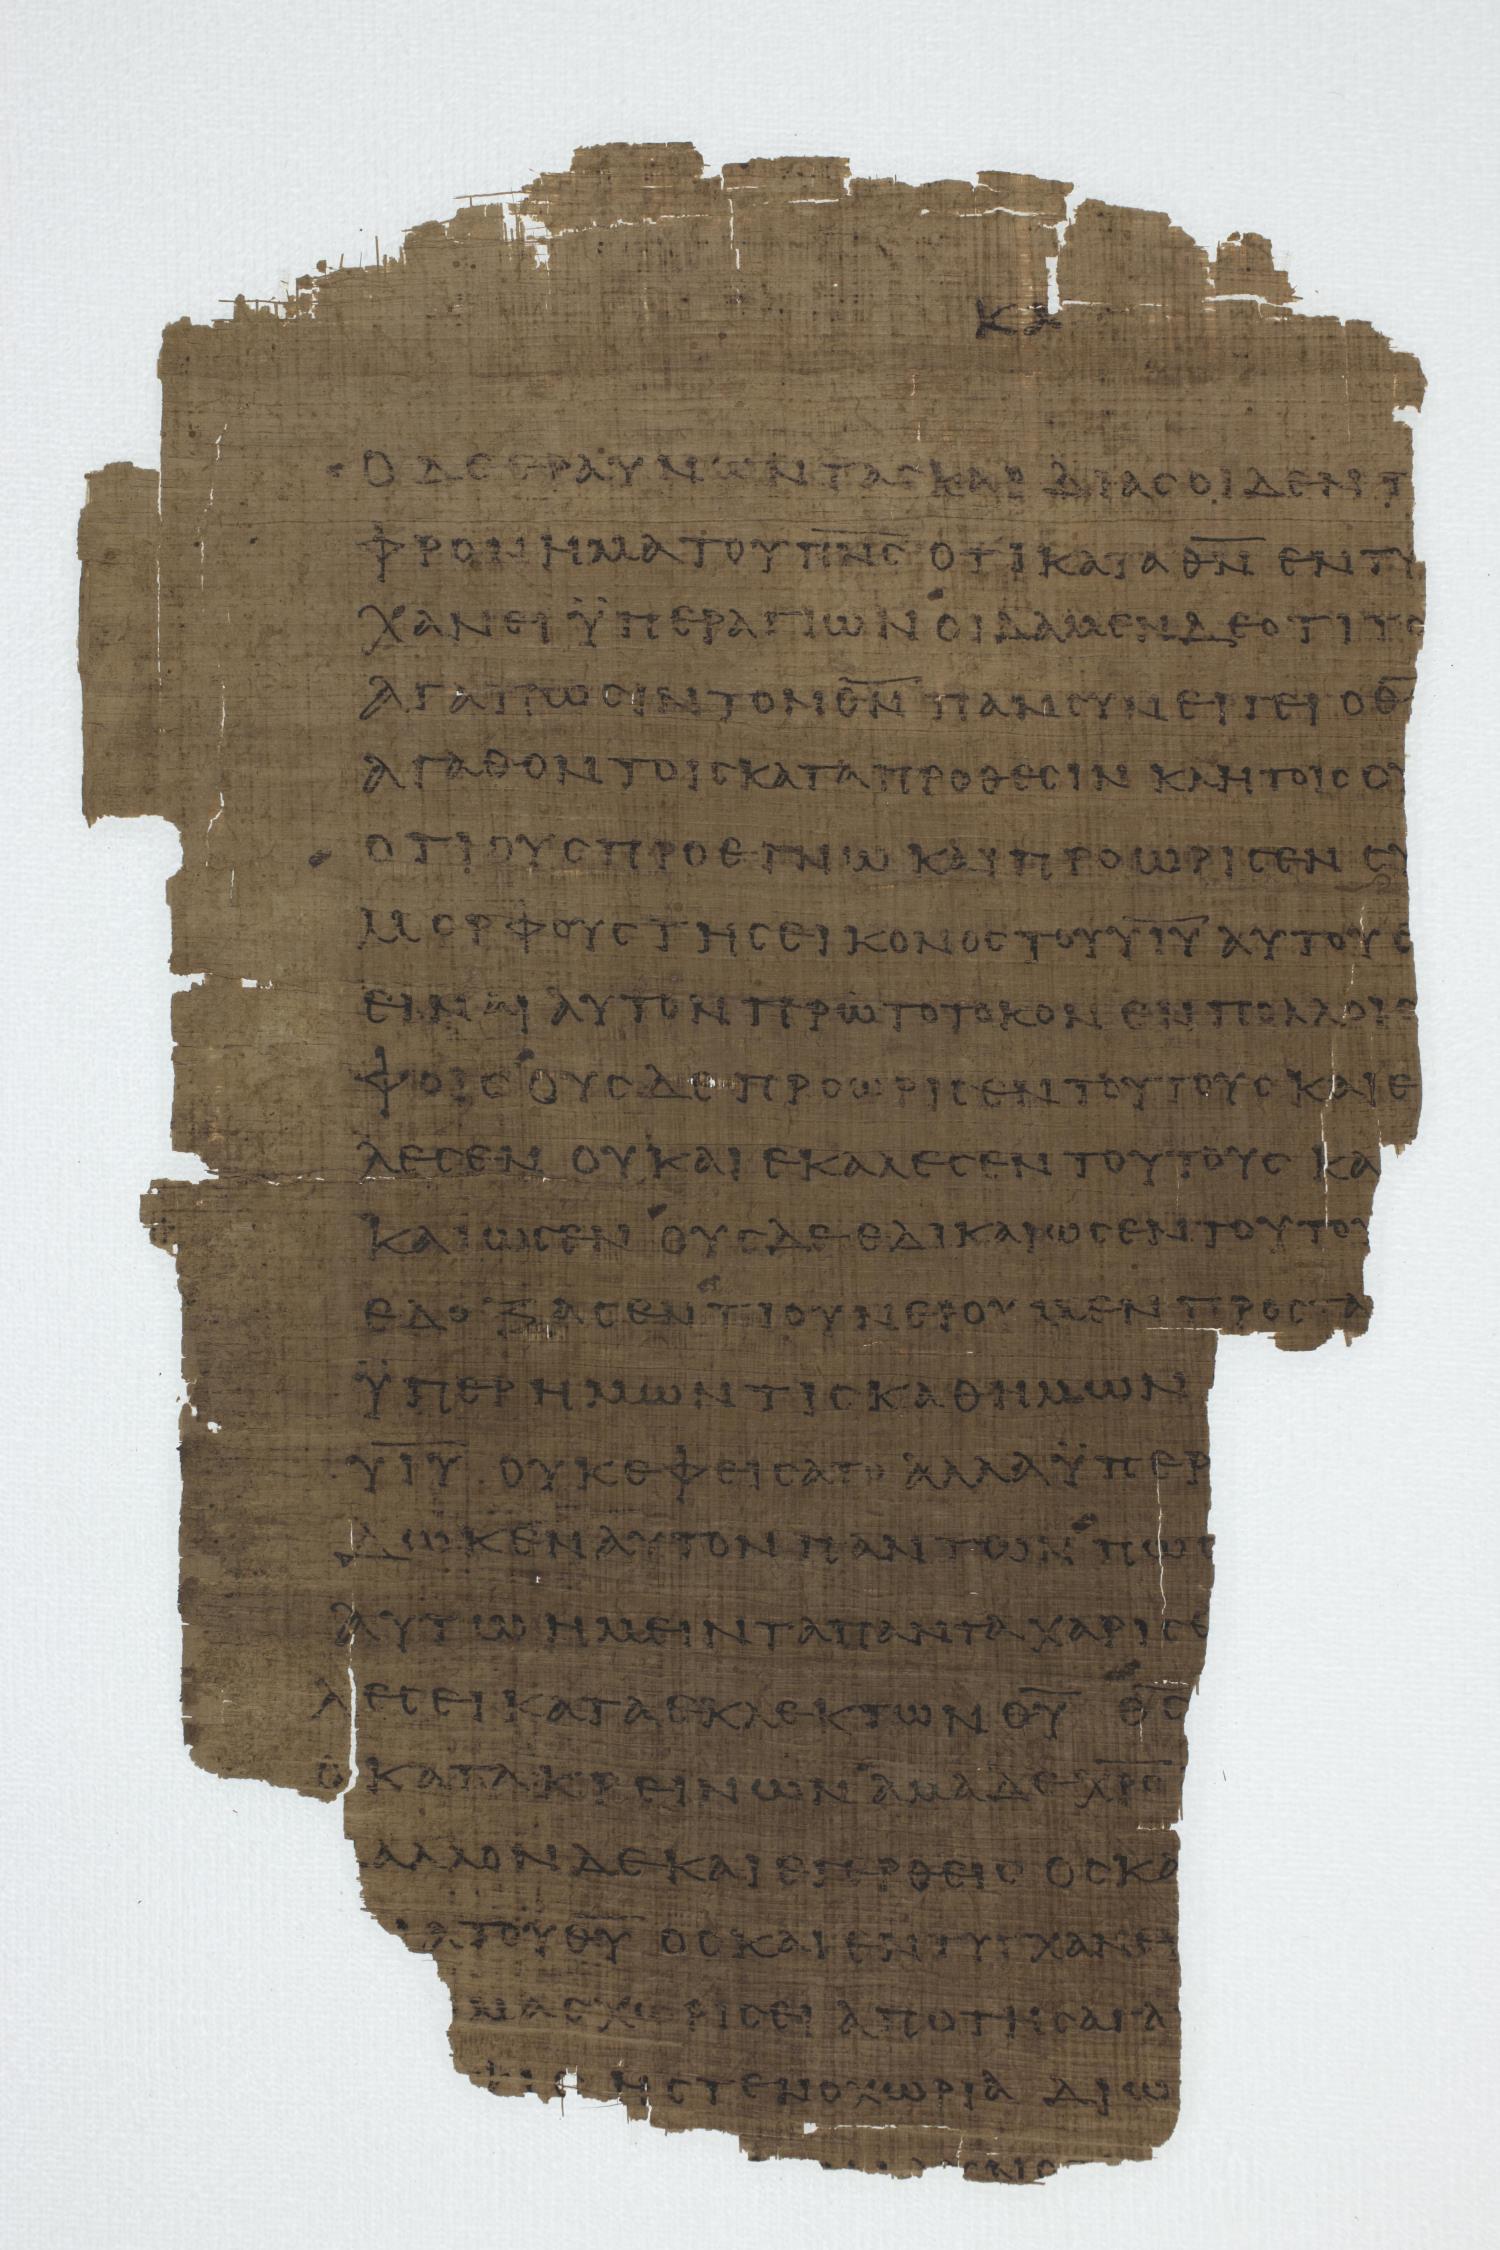 ΚΑ
Ο ΔΕ ΕΡΑΥΝΩΝ ΤΑΣ ΚΑΡΔΙΑΣ ΟΙΔΕΝ Τ
ΦΡΟΝΗΜΑ ΤΟΥ Π̅Ν̅Ϲ̅ ΟΤΙ ΚΑΤΑ Θ̅Ν̅ ΕΝΤΥ
ΧΑΝΕΙ ΫΠΕΡ ΑΓΙΩΝ ΟΙΔΑΜΕΝ ΔΕ ΟΤΙ ΤΟ
ΑΓΑΠΩϹΙΝ ΤΟΝ Θ̅Ν̅ ΠΑΝ ϹΥΝΕΡΓΕΙ Ο Θ̅
ΑΓΑΘΟΝ ΤΟΙϹ ΚΑΤΑ ΠΡΟΘΕϹΙΝ ΚΛΗΤΟΙϹ ΟΥ
ΟΤΙ ΟΥϹ ΠΡΟΕΓΝΩ ΚΑΙ ΠΡΟΩΡΙϹΕΝ ϹΥ
ΜΟΡΦΟΥϹ ΤΗϹ ΕΙΚΟΝΟϹ ΤΟΥ Υ̅Ι̅Υ̅ ΑΥΤΟΥ Ε
ΕΙΝΑΙ ΑΥΤΟΝ ΠΡΩΤΟΤΟΚΟΝ ΕΝ ΠΟΛΛΟΙϹ
ΦΟΙϹ ΟΥϹ ΔΕ ΠΡΟΩΡΙϹΕΝ ΤΟΥΤΟΥϹ ΚΑΙ Ε
ΛΕϹΕΝ ΟΥ ΚΑΙ ΕΚΑΛΕϹΕΝ ΤΟΥΤΟΥϹ ΚΑ
ΚΑΙΩϹΕΝ ΟΥϹ ΔΕ ΕΔΙΚΑΙΩϹΕΝ ΤΟΥΤΟΥ
ΕΔΟΞΑϹΕΝ ΤΙ ΟΥΝ ΕΡΟΥΜΕΝ ΠΡΟϹ ΤΑ
ΫΠΕΡ ΗΜΩΝ ΤΙϹ ΚΑΘ ΗΜΩΝ
Υ̅Ι̅Υ̅ ΟΥΚ ΕΦΕΙϹΑΤΟ ΑΛΛΑ ΫΠΕΡ
ΔΩΚΕΝ ΑΥΤΟΝ ΠΑΝΤΩΝ ΠΩϹ
ΑΥΤΩ ΗΜΕΙΝ ΤΑ ΠΑΝΤΑ ΧΑΡΙϹΕ
ΛΕϹΕΙ ΚΑΤΑ ΕΚΛΕΚΤΩΝ Θ̅Υ̅ Θ̅Ϲ̅
Ο ΚΑΤΑΚΡΕΙΝΩΝ ΑΜΑ ΔΕ Χ̅Ρ̅Ϲ̅
ΑΛΛΟΝ ΔΕ ΚΑΙ ΕΓΕΡΘΕΙϹ ΟϹ ΚΑ
Α ΤΟΥ Θ̅Υ̅ ΟϹ ΚΑΙ ΕΝΤΥΓΧΑΝΕΙ
ΜΑϹ ΧΩΡΙϹΕΙ ΑΠΟ ΤΗϹ ΑΓΑ
Η ϹΤΕΝΟΧΩΡΙΑ ΔΙΩ